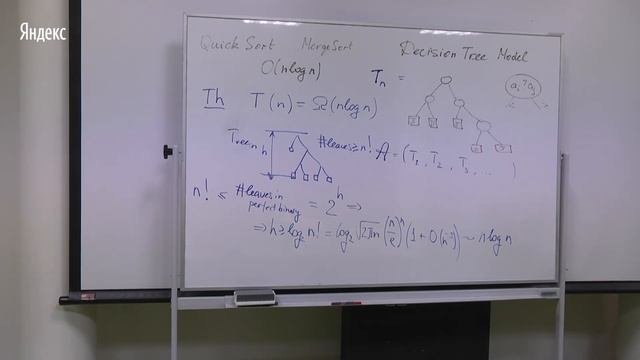 Яндекс
Quick Sort MergeSort Decision Tree Model
O(n log n)
Tₙ =
aᵢ ? aⱼ
Th T(n) = Ω(n log n)
Treeₙ h #leaves ≥ n! A = (T₁, T₂, T₃, ... )
n! ≤ #leaves in perfect binary = 2ʰ ⇒
⇒ h ≥ log₂ n! = log₂ √2πn (n/e)ⁿ (1 + O(n⁻¹)) ~ n log n